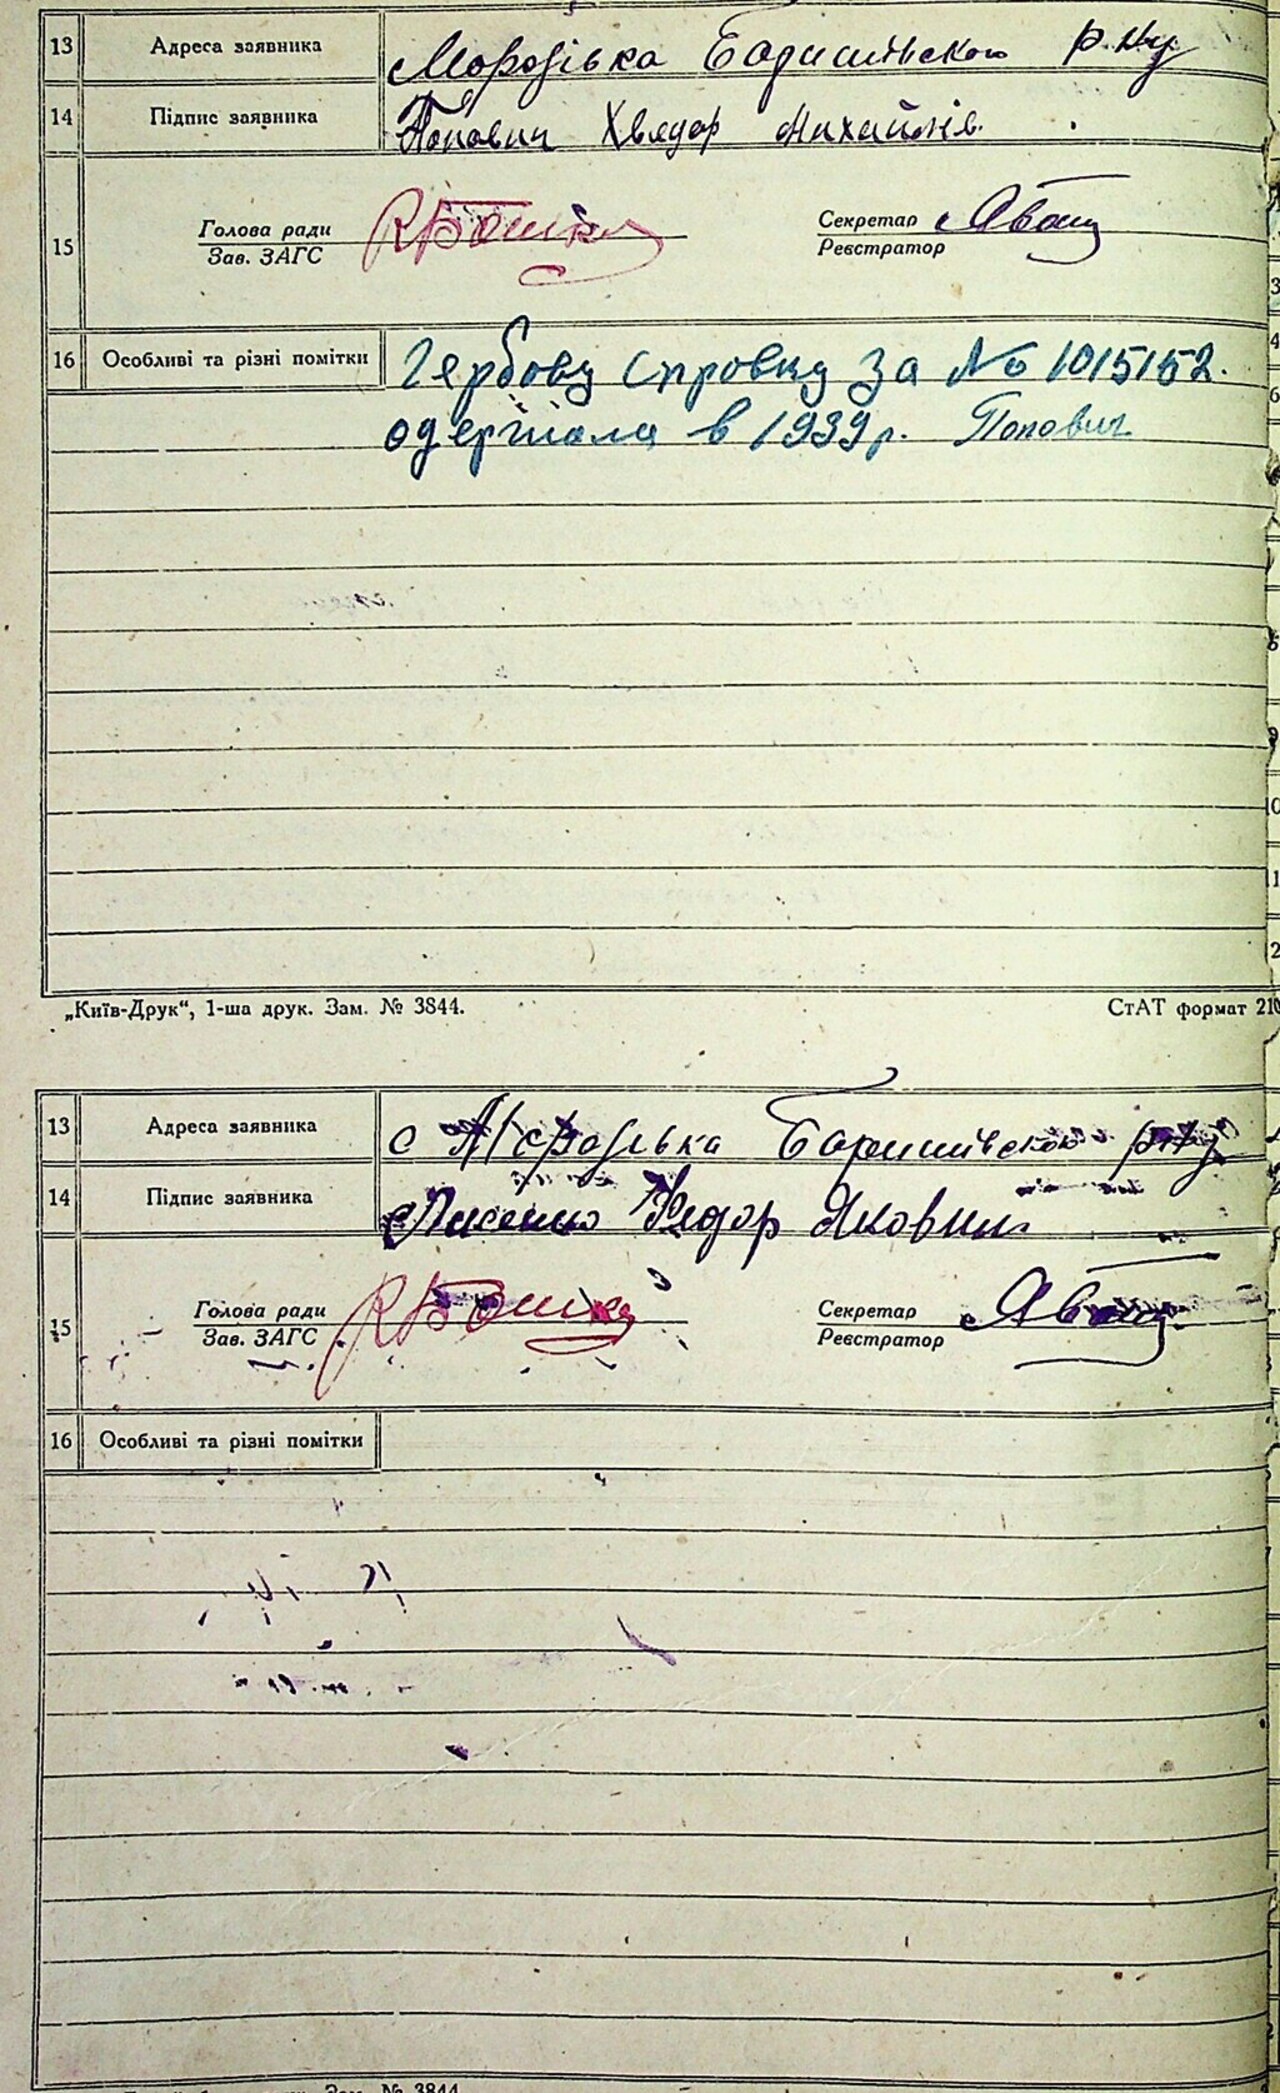 13 Адреса заявника Морозівка Баришівського р-ну
14 Підпис заявника Попович Хведор Михайлів.
15 Голова ради Секретар
Зав. ЗАГС Реєстратор
16 Особливі та різні помітки Гербову справку за № 1015152.
одержала в 1939 р. Попович
„Київ-Друк“, 1-ша друк. Зам. № 3844. СтАТ формат 210
13 Адреса заявника с Морозівка Баришівського р-ну
14 Підпис заявника Федор Якович
15 Голова ради Секретар
Зав. ЗАГС Реєстратор
16 Особливі та різні помітки
№ 3844